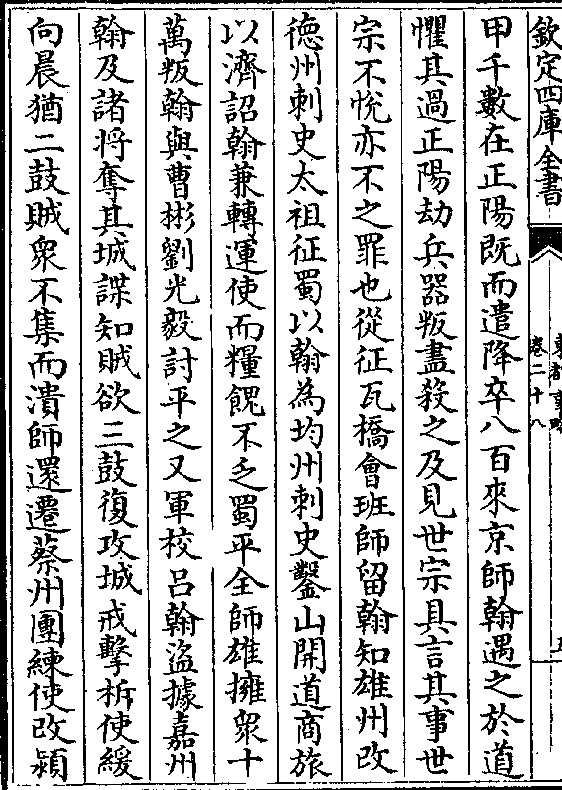 欽定四庫全書
東都事略
卷二十八
甲千數在正陽既而遣降卒八百來京師翰遇之於道
懼其過正陽劫兵器叛盡殺之及見世宗具言其事世
宗不悅亦不之罪也從征瓦橋會班師留翰知雄州改
徳州刺史太祖征蜀以翰為均州刺史鑿山開道商旅
以濟詔翰兼轉運使而糧餽不乏蜀平全師雄擁衆十
萬叛翰與曹彬劉光毅討平之又軍校呂翰盜據嘉州
翰及諸将奪其城諜知賊欲三鼓復攻城戒擊柝使緩
向晨猶二鼓賊衆不集而潰師還遷蔡州團練使改潁